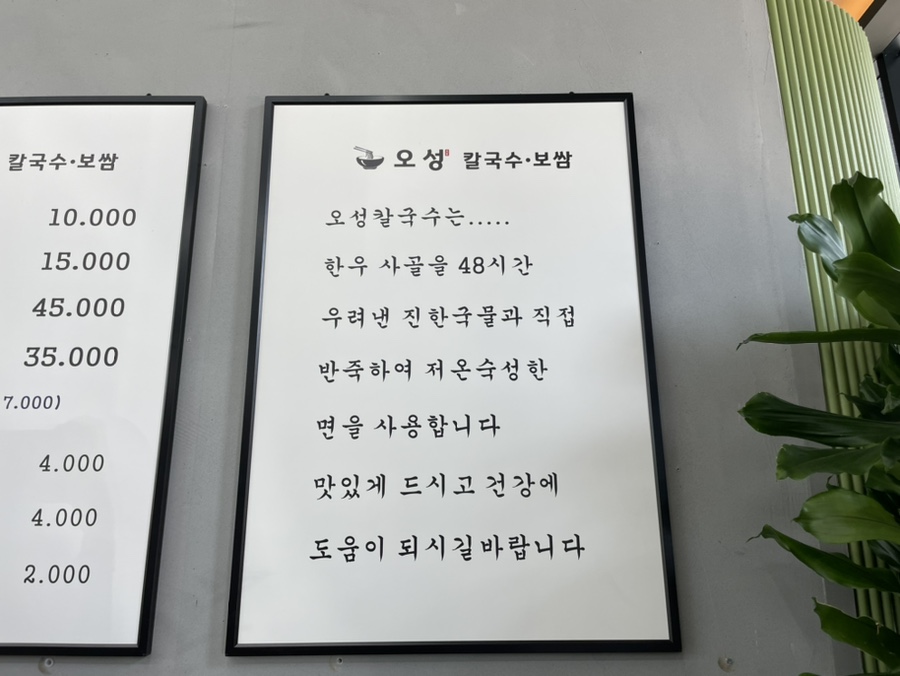 칼국수·보쌈
10.000
15.000
45.000
35.000
7.000)
4.000
4.000
2.000
오성 칼국수·보쌈
오성칼국수는.....
한우 사골을 48시간
우려낸 진한국물과 직접
반죽하여 저온숙성한
면을 사용합니다
맛있게 드시고 건강에
도움이 되시길바랍니다